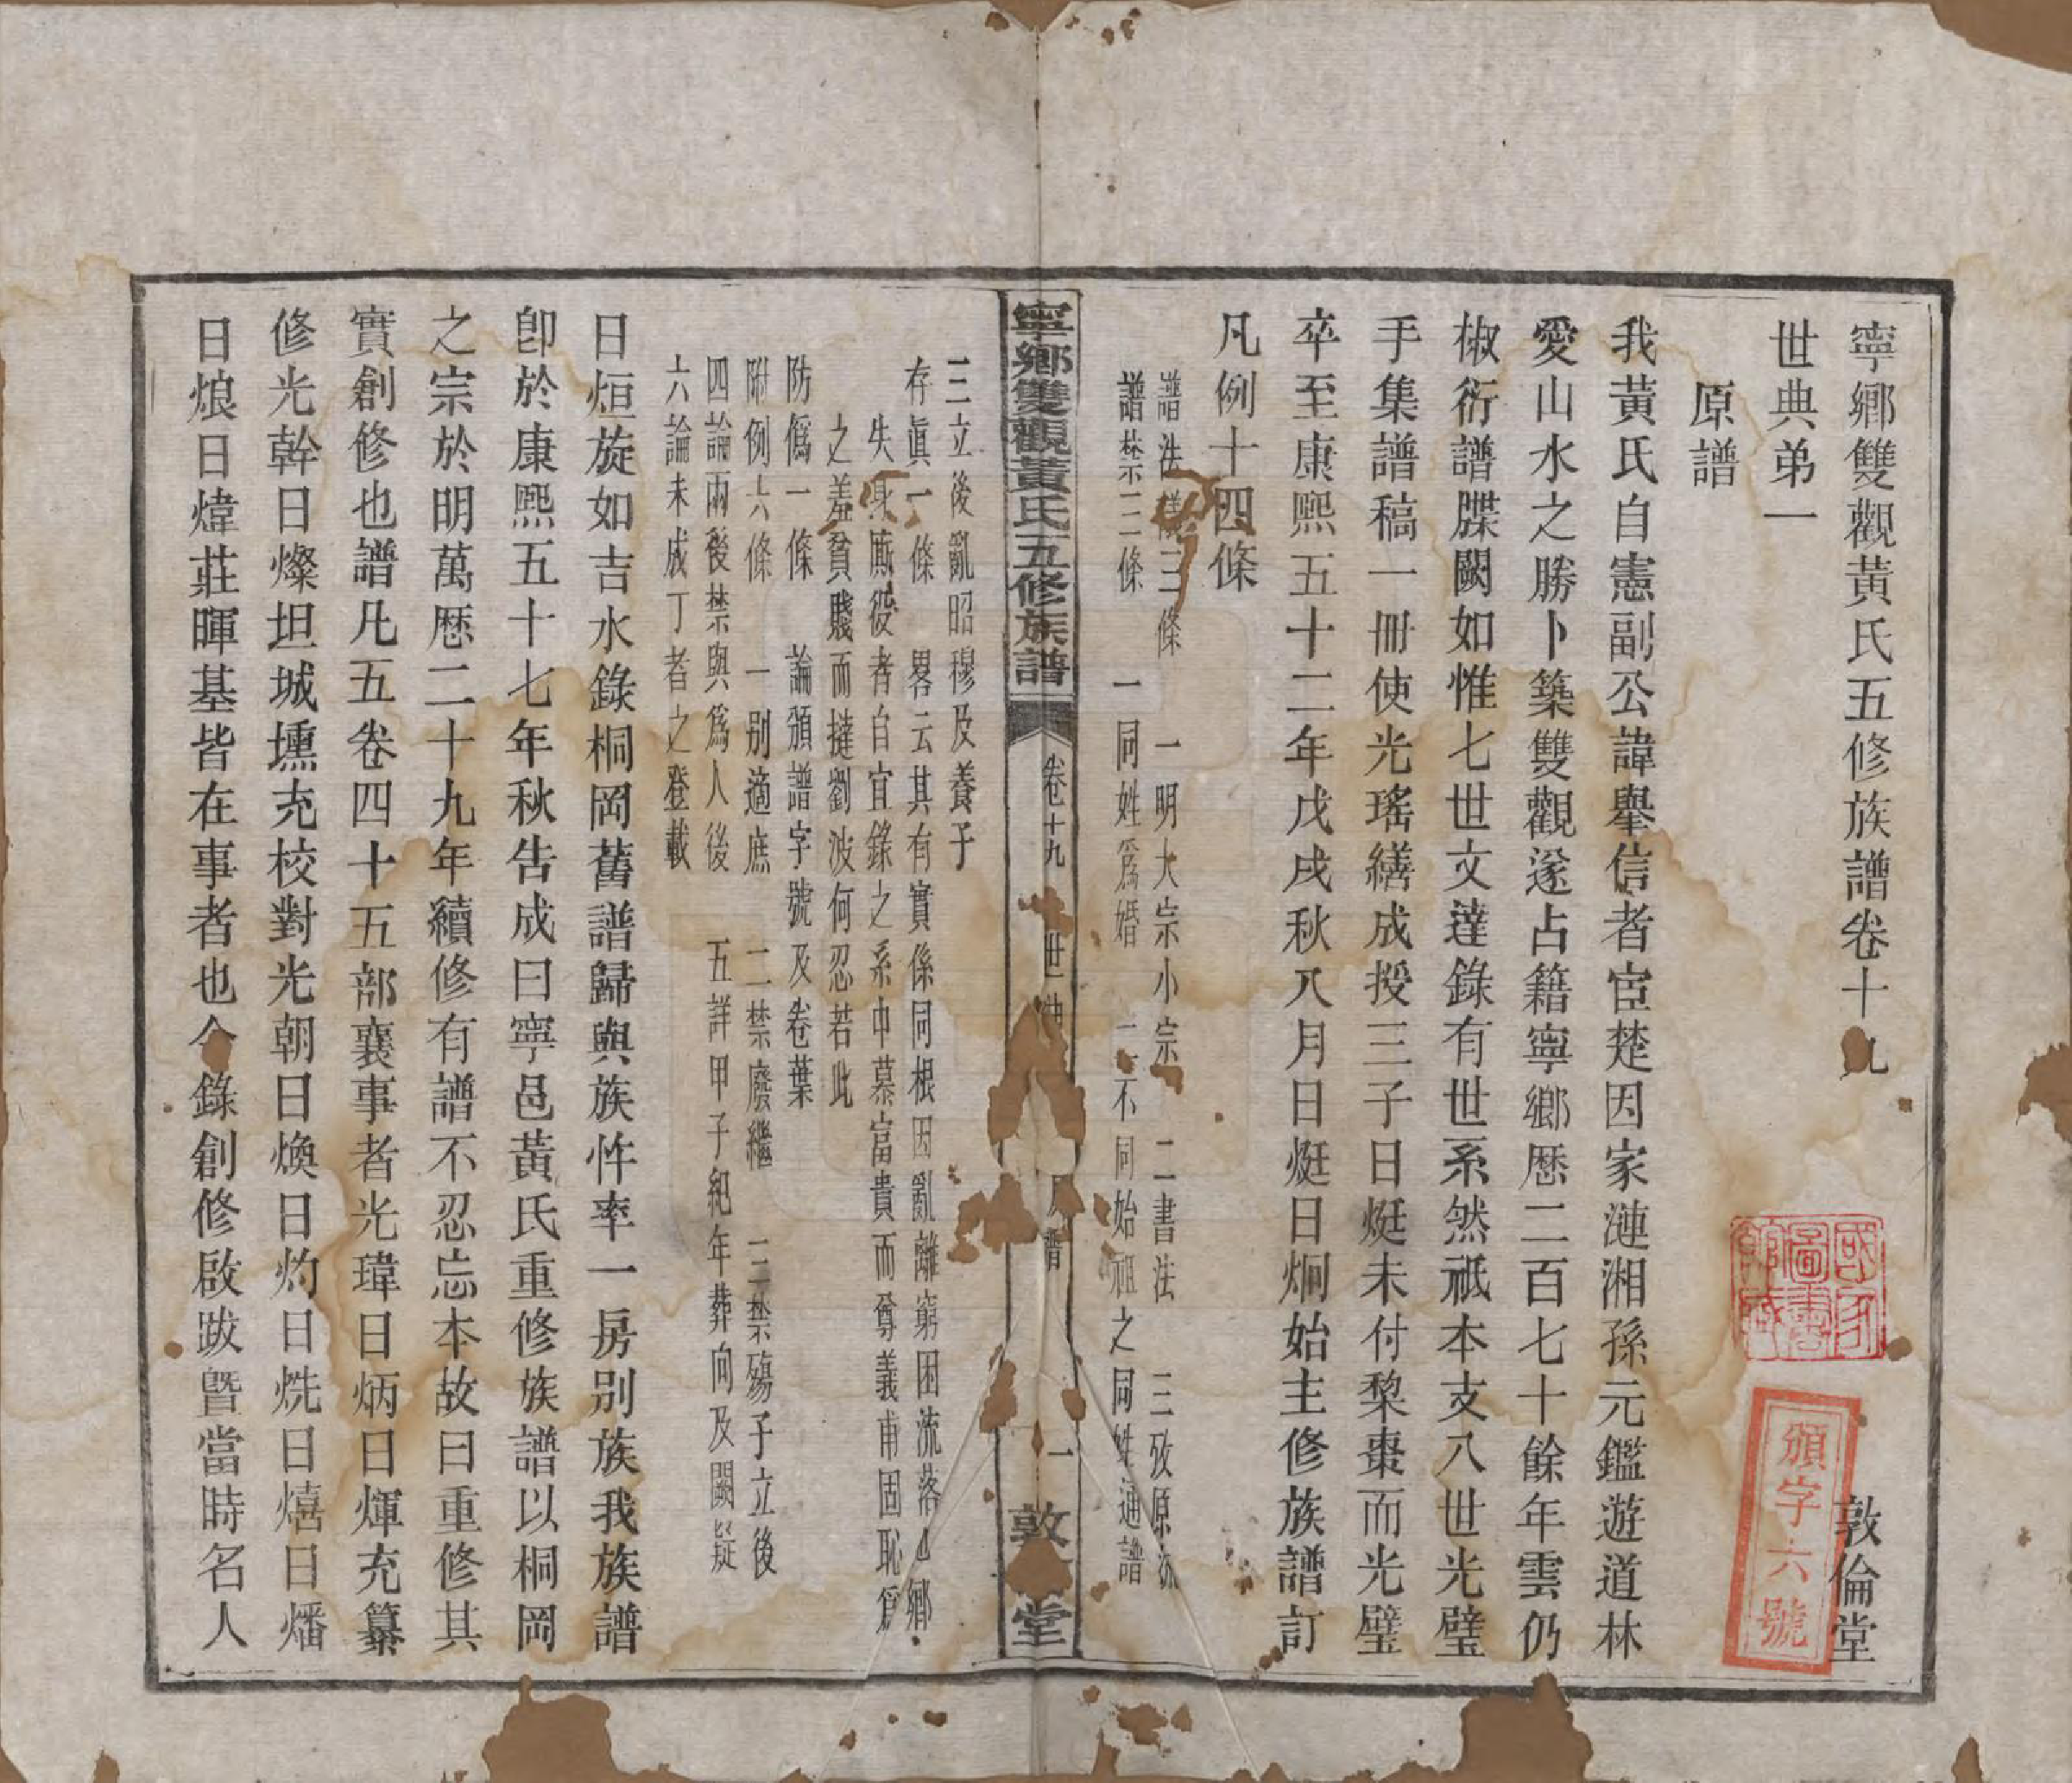 寧鄉雙觀黃氏五修族譜卷十九
敦倫堂
世典弟一
原譜
我黃氏自憲副公諱舉信者宦楚因家漣湘孫元鑑遊道林
愛山水之勝卜築雙觀遂占籍寧鄉歷二百七十餘年雲仍
椒衍譜牒闕如惟七世文達錄有世系然祇本支八世光璧
手集譜稿一冊使光瑤繕成授三子日烶未付棃棗而光璧
卒至康熙五十二年戊戌秋八月日烶日炯始主修族譜訂
凡例十四條
譜法三條 一明大宗小宗 二書法 三攷原流
譜禁三條 一同姓爲婚 二不同始祖之同姓通譜
寧鄉雙觀黃氏五修族譜 卷十九 世典 原譜 一 敦倫堂
三立後亂昭穆及養子
存眞一條 畧云其有實係同根因亂離窮困流落他鄉
失身厮役者自宜錄之系中慕富貴而尊義甫固恥爲
之羞貧賤而撻劉波何忍若此
防僞一條 論頒譜字號及卷葉
附例六條 一別適庶 二禁廢繼 三禁殤子立後
四論兩後禁與爲人後 五詳甲子紀年葬向及闕疑
六論未成丁者之登載
日烜旋如吉水錄桐岡舊譜歸與族忤率一房别族我族譜
卽於康熙五十七年秋告成曰寧邑黃氏重修族譜以桐岡
之宗於明萬歷二十九年續修有譜不忍忘本故曰重修其
實創修也譜凡五卷四十五部襄事者光瑋日炳日煇充纂
修光幹日燦坦城壎充校對光朝日煥日灼日烍日熺日燔
日烺日煒莊暉基皆在事者也今錄創修啟跋曁當時名人
國家圖書館藏
頒字六號